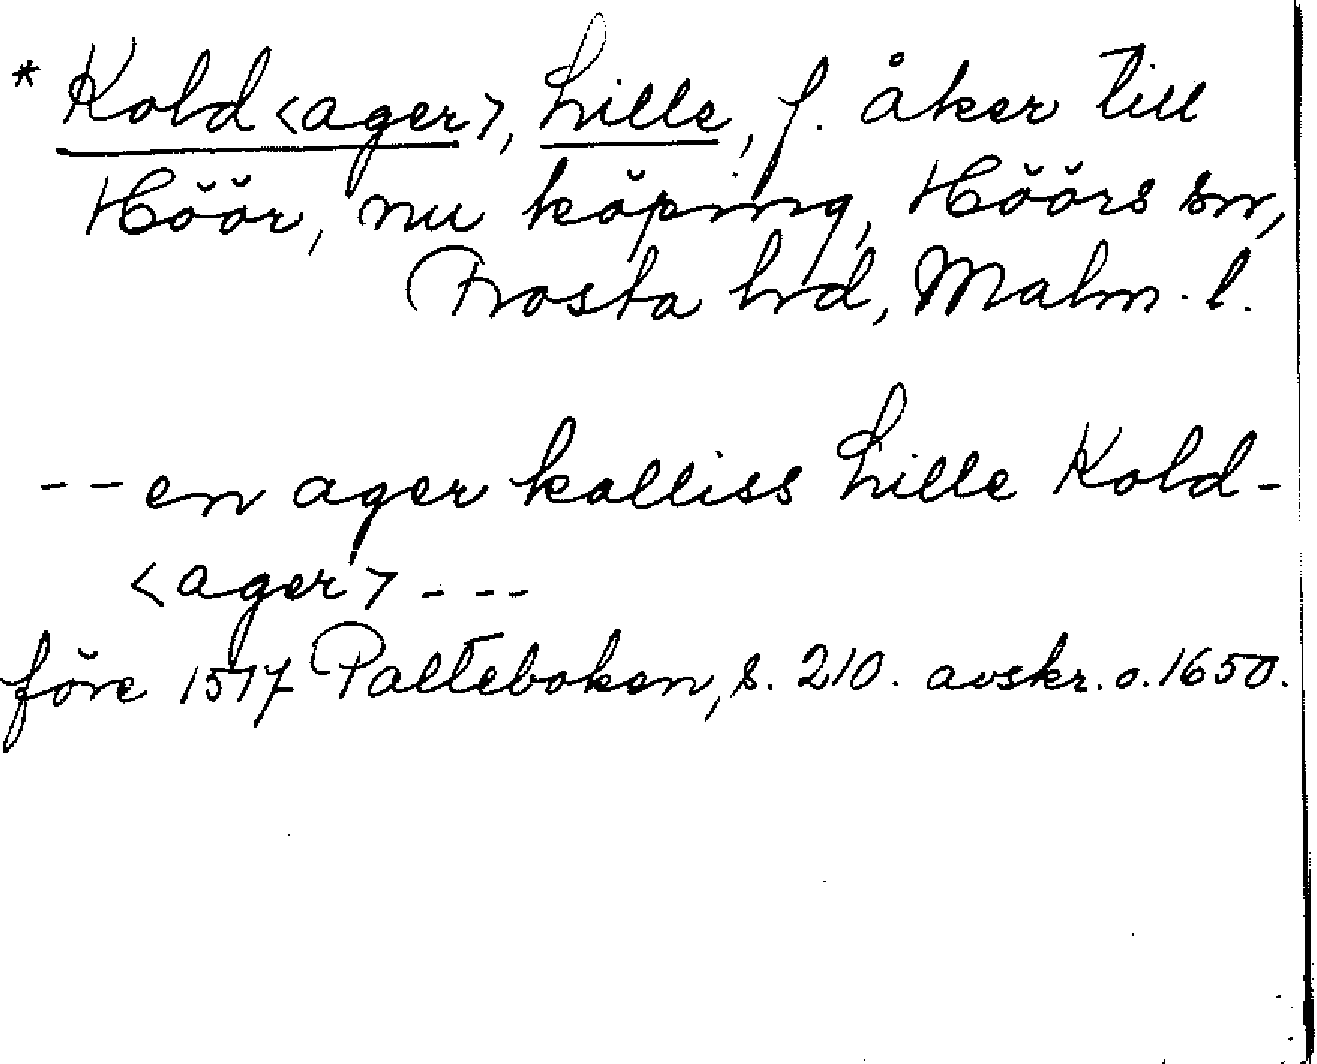 * Kold <ager>, Lille, f. åker till
Höör, nu köping, Höörs sn,
Frosta hrd, Malm. l.
-- en ager kalliss Lille Kold-
<ager> ---
före 1517 Palteboken, s. 210. avskr. o. 1650.